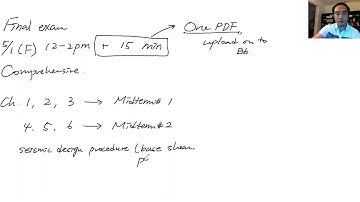 Final exam
5/1 (F) 12-2pm + 15 min
One PDF,
upload on to
Bb
Comprehensive.
Ch. 1, 2, 3 → Midterm#1
4, 5, 6 → Midterm#2
seismic design procedure (base shear